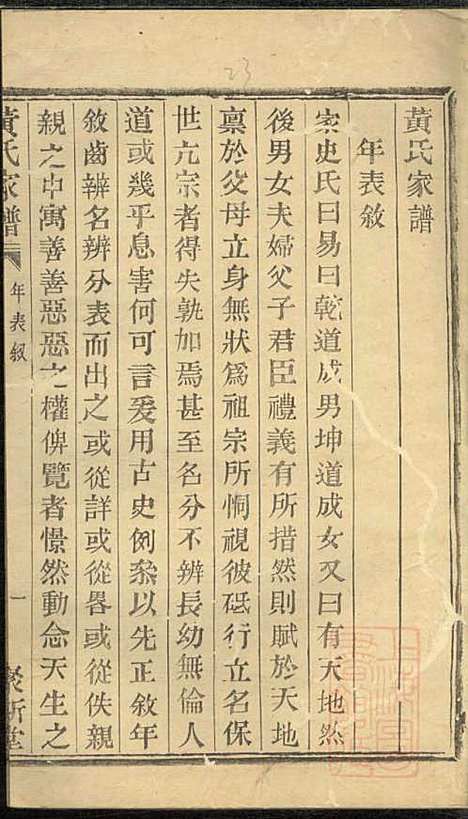 23
黃氏家譜
年表敘
家史氏曰易曰乾道成男坤道成女又曰有天地然
後男女夫婦父子君臣禮義有所措然則賦於天地
稟於父母立身無狀爲祖宗所恫視彼砥行立名保
世亢宗者得失孰加焉甚至名分不辨長幼無倫人
道或幾乎息害何可言爰用古史例叅以先正敘年
敘齒辨名辨分表而出之或從詳或從畧或從佚親
親之中寓善善惡惡之權俾覽者憬然動念天生之
黃氏家譜
年表敘
一
聚斯堂